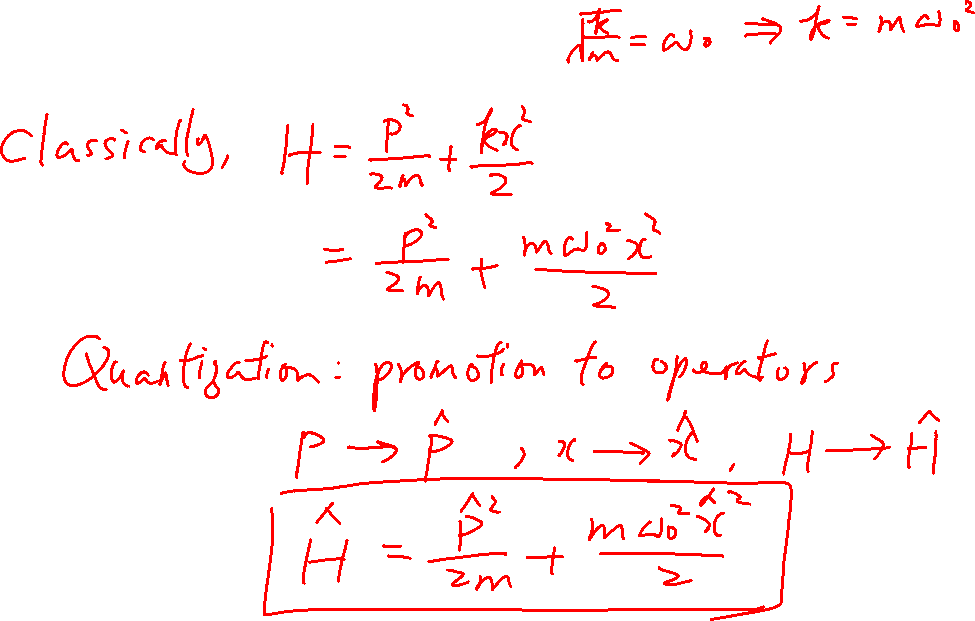 √(k/m) = ω₀ ⇒ k = mω₀²
Classically, H = p²/2m + kx²/2
= p²/2m + mω₀²x²/2
Quantization: promotion to operators
p → p̂, x → x̂, H → Ĥ
Ĥ = p̂²/2m + mω₀²x̂²/2